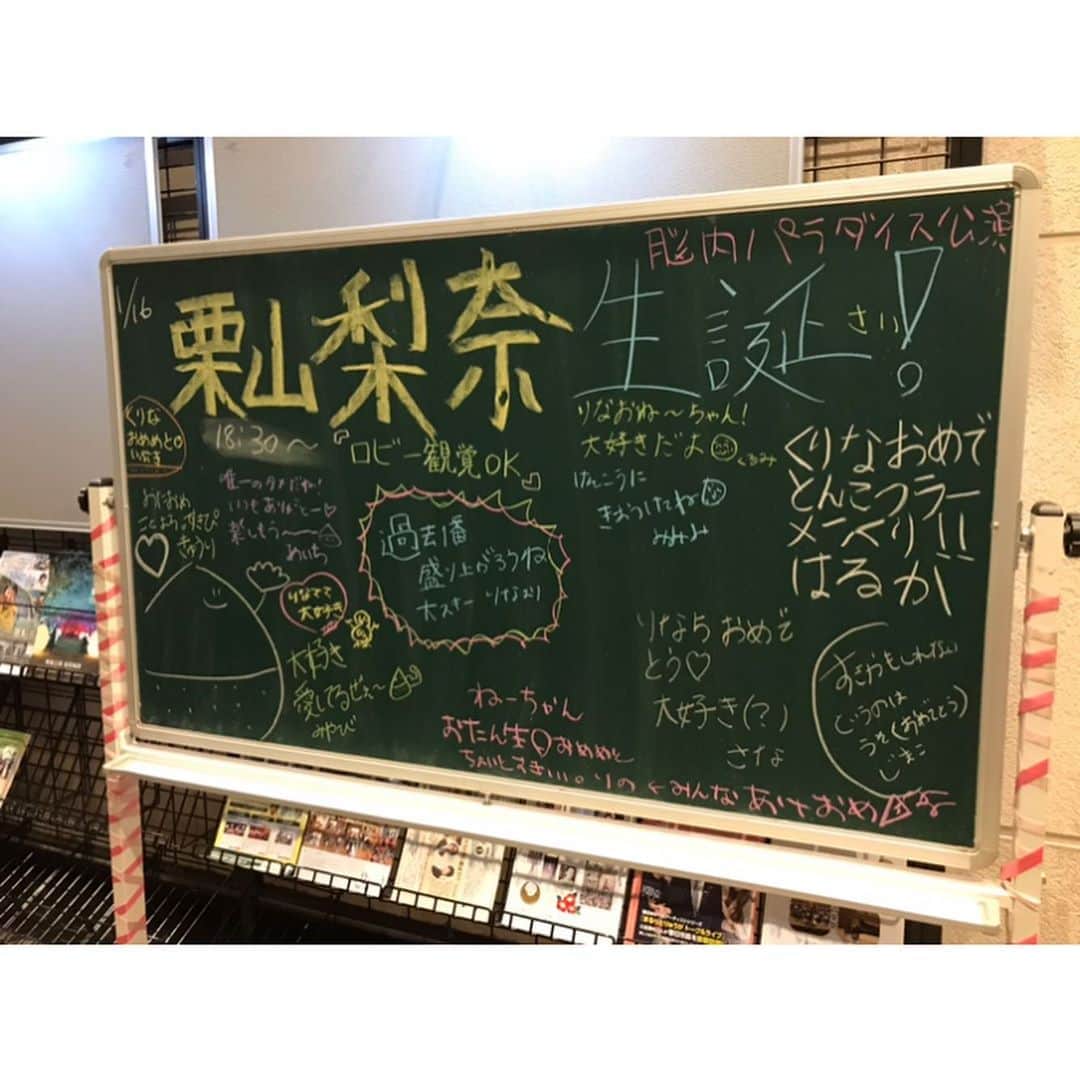 脳内パラダイス公演
1/16
栗山梨奈
生誕さい!
くりな
おめめとo
18:30〜
『ロビー観覧OK』
唯一のタメだね!
いつもありがとー♡
楽しもう〜
めいち
りなおね〜ちゃん!
大好きだよ
くるみ
けんこうに
きをつけてね
みみみ
くりなおめで
とんこつラー
メーくり!!
はるが
過去1番
盛り上がろうね
大スキー りなおり
りなてて
大好き
大好き
愛してるぜぇ〜
みやび
ねーちゃん
おたん生日おめめと
ちゃいとすきい。りの
りなちおめで
とう♡
大好き(?)
さな
すきかもしれない
というのは
うそ(おめでとう)
じまこ
くみんなあけおめ